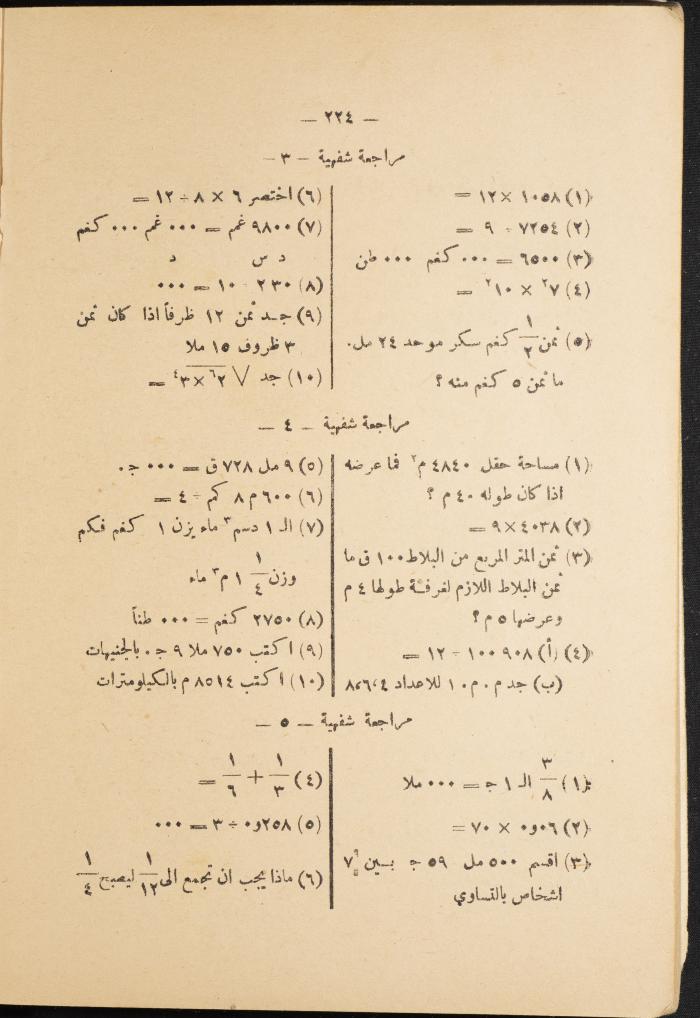 — ٢٢٤ —
مراجعة شفهية — ٣ —
(١) ١٠٥٨ × ١٢ =
(٢) ٧٢٥٤ ÷ ٩ =
(٣) ٦٥٠٠ = ٠٠٠ كغم ٠٠٠ طن
(٤) ٧² × ١٠² =
(٥) ثمن ١/٢ كغم سكر موحد ٢٤ مل.
ما ثمن ٥ كغم منه ؟
(٦) اختصر ٦ × ٨ ÷ ١٢ =
(٧) ٩٨٠٠ غم = ٠٠٠ غم ٠٠٠ كغم
د س د
(٨) ٣٠ ٢ ÷ ١٠ = ٠٠٠
(٩) جـد ثمن ١٢ ظرفاً اذا كان ثمن
٣ ظروف ١٥ ملا
(١٠) جد √٢⁶ × ٣⁴ =
مراجعة شفهية — ٤ —
(١) مساحة حقل ٤٨٤٠ م² فما عرضه
اذا كان طوله ٤٠ م ؟
(٢) ٤٠٣٨ × ٩ =
(٣) ثمن المتر المربع من البلاط ١٠٠ ق ما
ثمن البلاط اللازم لغرفـة طولها ٤ م
وعرضها ٥ م ؟
(٤) (أ) ٩٠٨ ١٠٠ ÷ ١٢ =
(ب) جد م ٠ م ٠ ا للاعداد ٤،٦،٨
(٥) ٩ مل ٧٢٨ ق = ٠٠٠ ج.
(٦) ٦٠٠ م ٨ كم ÷ ٤ =
(٧) الـ ١ دسم³ ماء يزن ١ كغم فكم
وزن ١/٤ ١ م³ ماء
(٨) ٢٧٥٠ كغم = ٠٠٠ طناً
(٩) اكتب ٧٥٠ ملا ٩ ج. بالجنيهات
(١٠) اكتب ٨٥١٤ م بالكيلومترات
مراجعة شفهية — ٥ —
(١) ٣/٨ الـ ١ ج = ٠٠٠ ملا
(٢) ٠٦و٠ × ٧٠ =
(٣) اقسم ٥٠٠ مل ٥٩ ج بـين ٧
اشخاص بالتساوي
(٤) ١/٣ + ١/٦ =
(٥) ٢٥٨و٠ ÷ ٣ = ٠٠٠
(٦) ماذا يجب ان تجمع الى ١/١٢ ليصبح ١/٤